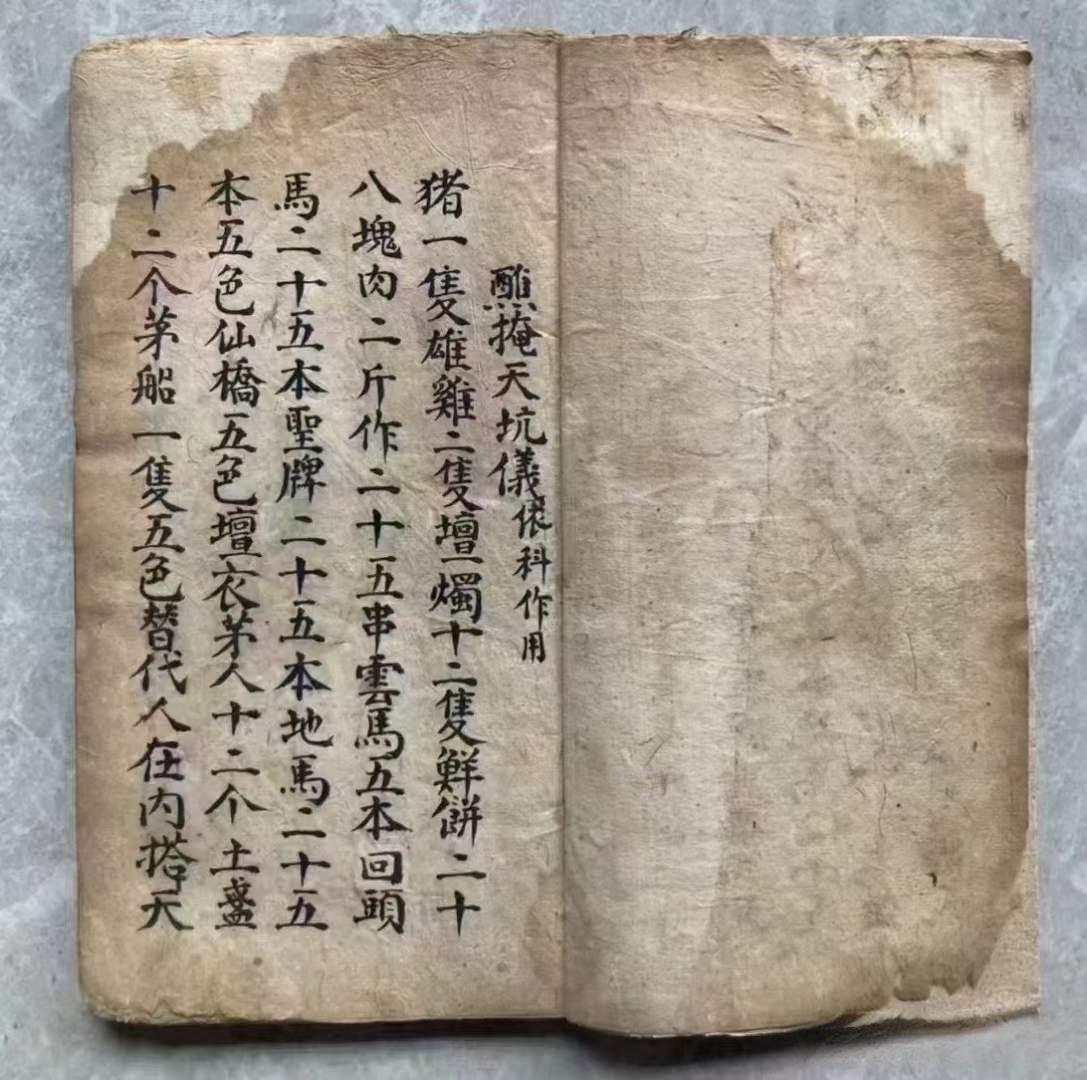 醮掩天坑儀依科作用
猪一隻雄雞二隻壇燭十二隻鮮餅二十
八塊肉二斤作二十五串雲馬五本回頭
馬二十五本聖牌二十五本地馬二十五
本五色仙橋五色壇衣茅人十二个土盞
十二个茅船一隻五色替代人在内搭天